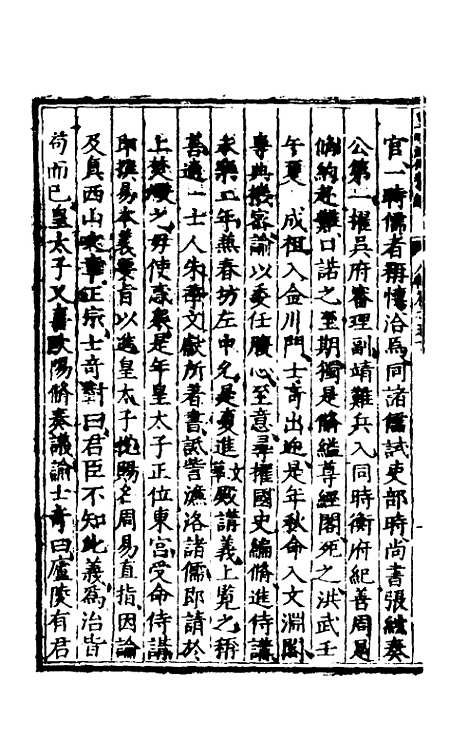 官一時儒者稱愜洽焉同諸儒試吏部時尚書張紞奏
公第一擢吳府審理副靖難兵入同時衡府紀善周是
脩約赴難口諾之至期獨是脩縊尊經閣死之洪武壬
午夏 成祖入金川門士奇出迎是年秋命入文淵閣
專典機密諭以委任腹心至意尋擢國史編脩進侍講
永樂二年兼春坊左中允是夏進文華殿講義上覽之稱
善適一士人朱季文獻所著書詆訾濂洛諸儒即請於
上焚燬之毋使惑衆是年皇太子正位東宮受命侍講
即撰易本義要旨以進皇太子悅賜名周易直指因論
及真西山文章正宗士奇對曰君臣不知此義為治皆
苟而已皇太子又喜歐陽脩奏議諭士奇曰廬陵有君